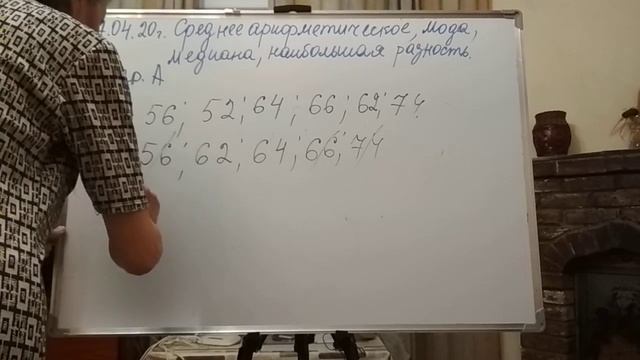 .04.20г. Среднее арифметическое, мода,
медиана, наибольшая разность.
р. А
56; 52; 64; 66; 62; 74
56; 62; 64; 66; 74